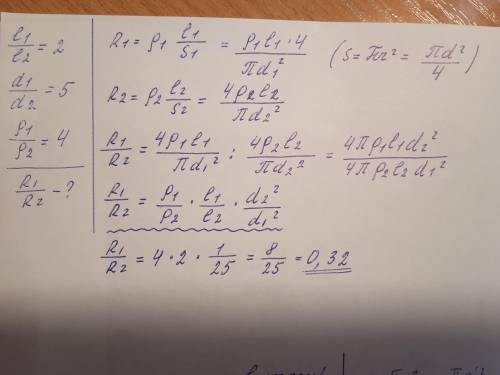 l1/l2 = 2
d1/d2 = 5
ρ1/ρ2 = 4
R1/R2 - ?
R1 = ρ1 l1/S1 = ρ1l1·4/πd1² (S = πr² = πd²/4)
R2 = ρ2 l2/S2 = 4ρ2l2/πd2²
R1/R2 = 4ρ1l1/πd1² : 4ρ2l2/πd2² = 4πρ1l1d2²/4πρ2l2d1²
R1/R2 = ρ1/ρ2 · l1/l2 · d2²/d1²
R1/R2 = 4 · 2 · 1/25 = 8/25 = 0,32